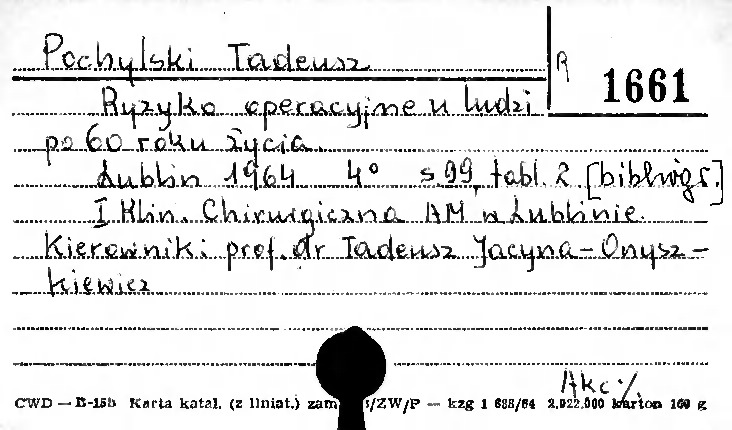 Pochylski Tadeusz
R 1661
Ryzyko operacyjne u ludzi
po 60 roku życia.
Lublin 1964 4° s. 99, tabl. 2 [bibliogr.]
I Klin. Chirurgiczna AM w Lublinie.
Kierownik: prof. dr Tadeusz Jacyna-Onysz-
kiewicz
Akc.
CWD — B-15b Karta katal. (z liniat.) zam /ZW/P — kzg 1 688/64 2.022.000 karton 160 g